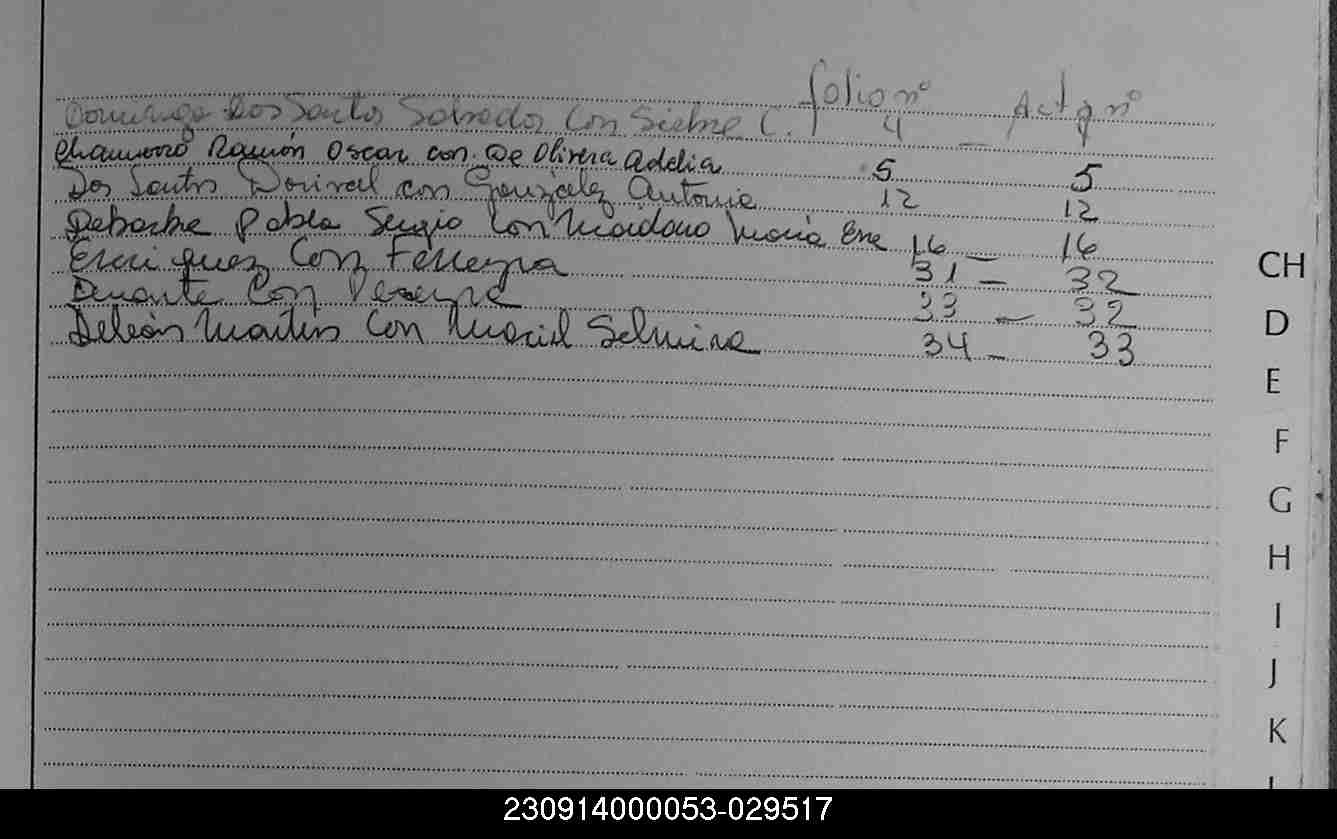 folio nº Acta nº
Domingo Dos Santos Salvador Con Siebne C. 4 -
Chamorro Ramón Oscar con De Olivera Adelia 5 5
Dos Santos Dorival con González Antonia 12 12
Pablo Sergio Con Maidana María Ene 16 - 16
Enriquez Con Ferreyra 31 - 32
Duarte Con Pereyra 33 - 32
Deleón Martín Con Maciel Selmira 34 - 33
CH
D
E
F
G
H
I
J
K
230914000053-029517